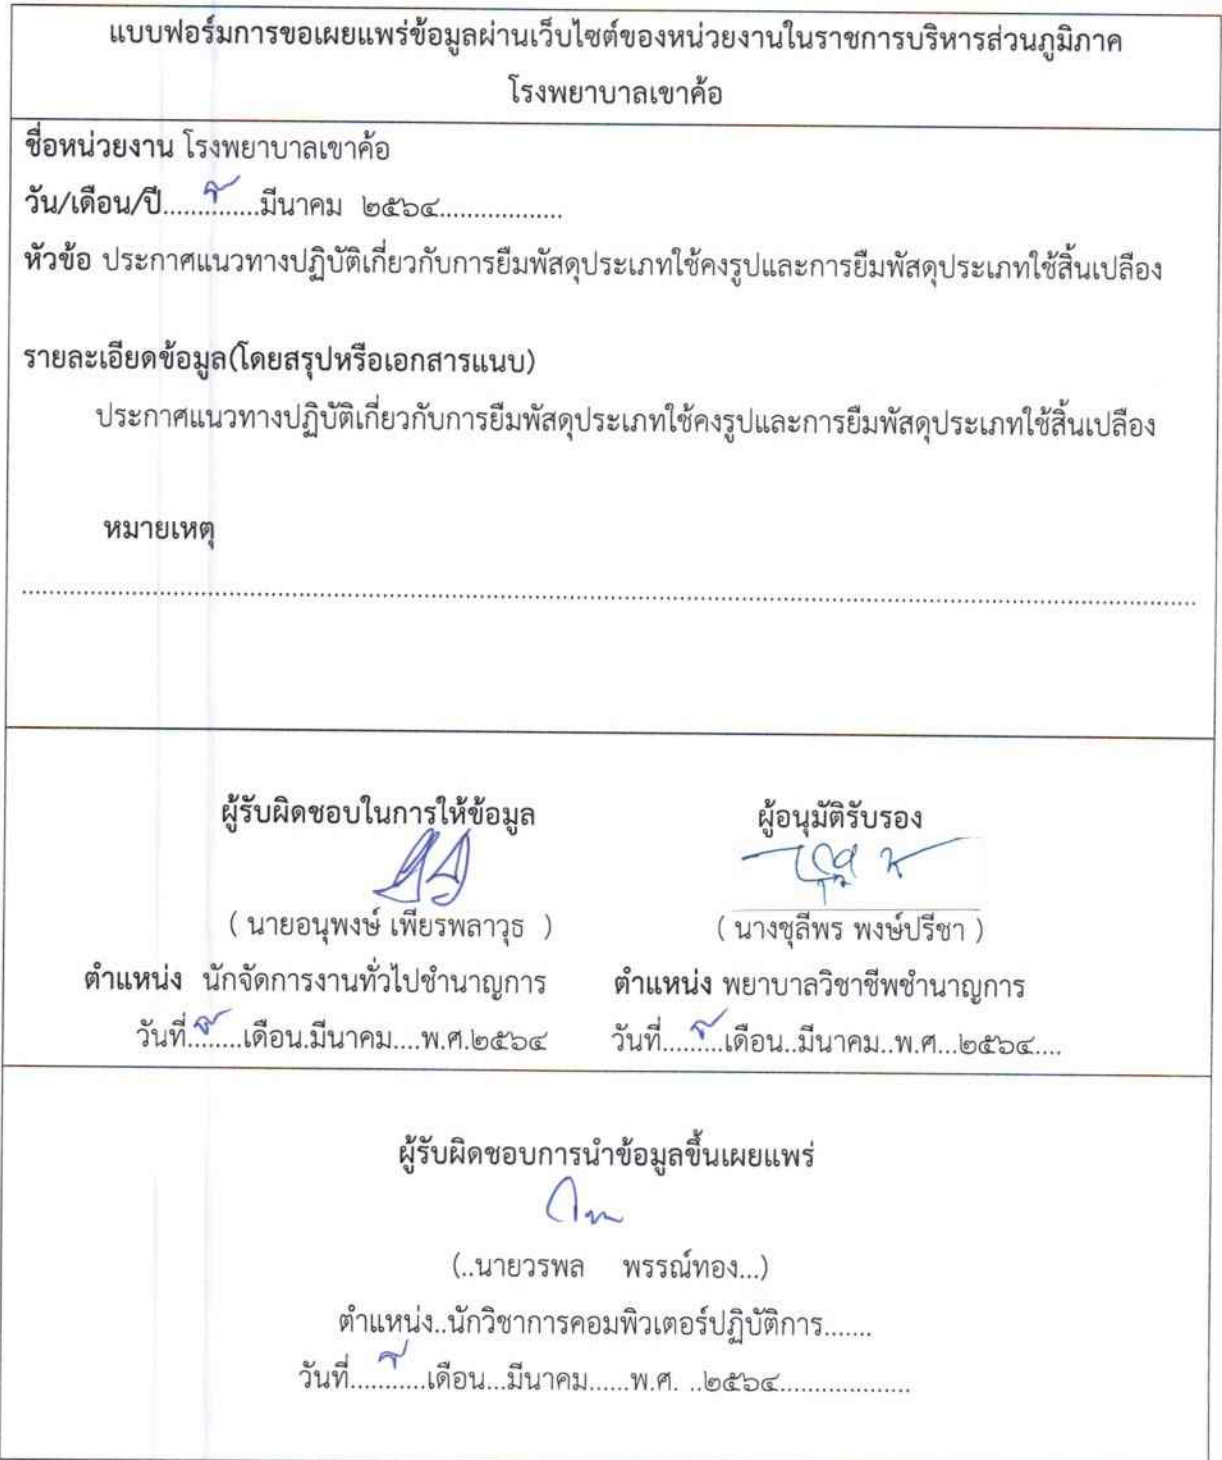 แบบฟอร์มการขอเผยแพร่ข้อมูลผ่านเว็บไซต์ของหน่วยงานในราชการบริหารส่วนภูมิภาค
โรงพยาบาลเขาค้อ
ชื่อหน่วยงาน โรงพยาบาลเขาค้อ
วัน/เดือน/ปี...............มีนาคม ๒๕๖๔..................
หัวข้อ ประกาศแนวทางปฏิบัติเกี่ยวกับการยืมพัสดุประเภทใช้คงรูปและการยืมพัสดุประเภทใช้สิ้นเปลือง
รายละเอียดข้อมูล(โดยสรุปหรือเอกสารแนบ)
ประกาศแนวทางปฏิบัติเกี่ยวกับการยืมพัสดุประเภทใช้คงรูปและการยืมพัสดุประเภทใช้สิ้นเปลือง
หมายเหตุ
ผู้รับผิดชอบในการให้ข้อมูล ผู้อนุมัติรับรอง
( นายอนุพงษ์ เพียรพลาวุธ ) ( นางชุลีพร พงษ์ปรีชา )
ตำแหน่ง นักจัดการงานทั่วไปชำนาญการ ตำแหน่ง พยาบาลวิชาชีพชำนาญการ
วันที่.........เดือน.มีนาคม....พ.ศ.๒๕๖๔ วันที่.........เดือน..มีนาคม..พ.ศ...๒๕๖๔....
ผู้รับผิดชอบการนำข้อมูลขึ้นเผยแพร่
(..นายวรพล พรรณ์ทอง...)
ตำแหน่ง..นักวิชาการคอมพิวเตอร์ปฏิบัติการ.......
วันที่...........เดือน...มีนาคม......พ.ศ. ..๒๕๖๔...................